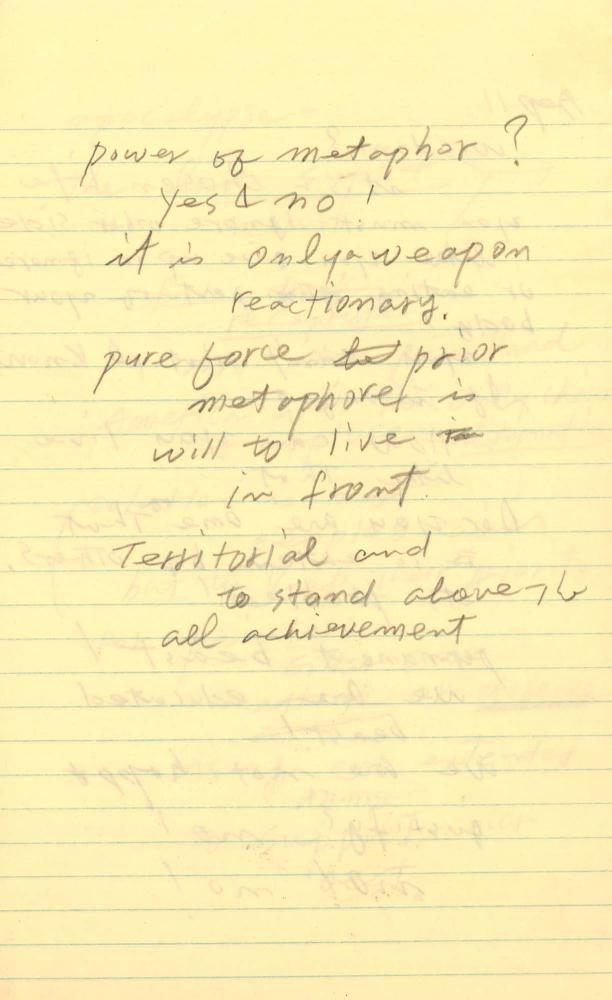 power of metaphor?
Yes & no!
it is only a weapon
reactionary.
pure force prior
metaphore is
will to live
in front.
Territorial and
to stand above
all achievement